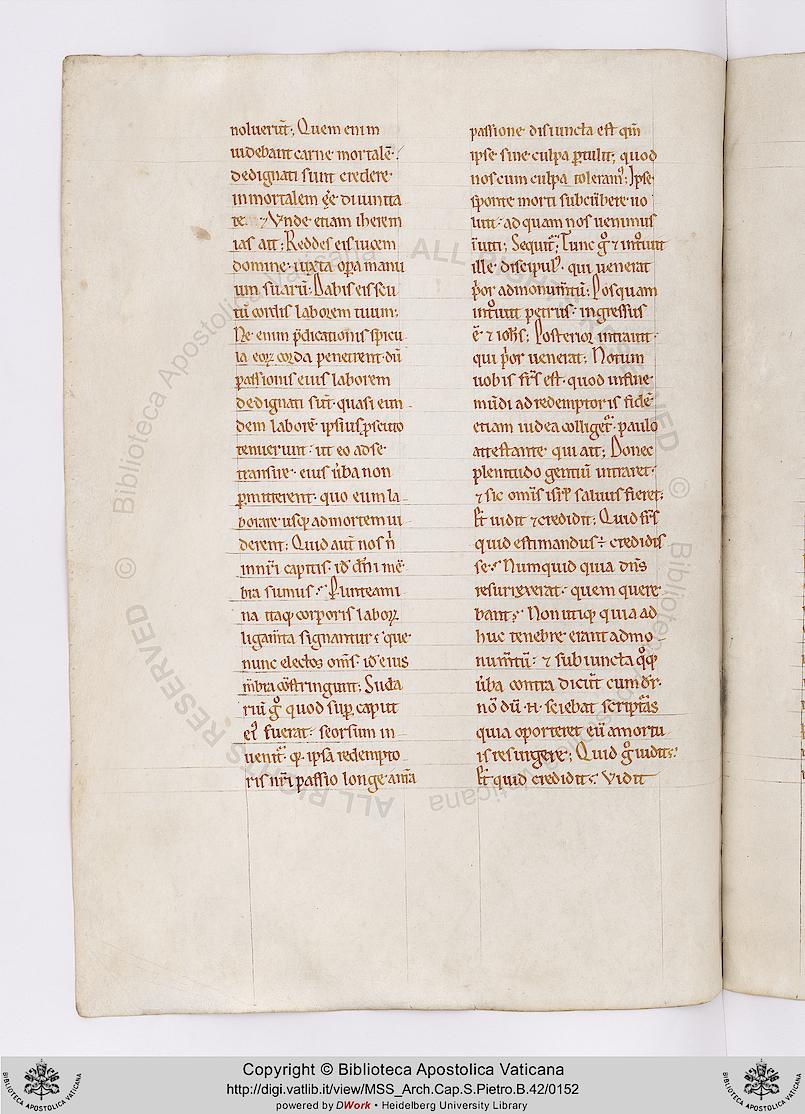 noluerūt; Quem enim
uidebant carne mortalē;
dedignati sunt credere
inmortalem ee̅ diuinita
te. Vnde etiam iherem
ias ait; Reddes eis uicem
domine iuxta opa manu
um suarū; Dabis eis scu
tū cordis laborem tuum;
Ne enim p̄dicationis spicu
la eoꝝ corda penetrent dū
passionis eius laborem
dedignati sūt quasi eun
dem laborē ipsius ꝓ scuto
tenuerunt ut eo ad se
transire eius ūba non
ꝑmitterent quo eum la
borare usqꝫ ad mortem ui
derent; Quid aut̄ nos n̄
inn̄ri capitis id ē dn̄i mē
bra sumus; Punteami
na itaqꝫ corporis laboꝝ
ligam̄ta signantur que
nunc electos om̄s id ē eius
m̄bra cōstringunt; Suda
riū gͦ quod suꝑ caput
eiꝰ fuerat seorsum in
uenit᷑ qꝫ ipsa redempto
ris nr̄i passio longe a nr̄a
passione disiuncta est qm̄
ipse sine culpa ꝑtulit; quod
nos cum culpa toleramꝰ; Ipse
sponte morti subcūbere uo
luit ad quam nos uenimus
īuiti; Sequit᷑; Tunc gͦ & intͦiuit
ille discipulꝰ qui uenerat
p̍or ad monum̄tū; Posquam
intͦiuit petrus ingressus
ē & ioh̄s; Posterior intrauit
qui p̍or uenerat; Notum
uobis fr̄s est quod in fine
mūdi ad redemptoris fidē
etiam iudea colliget᷑ paulo
attestante qui ait; Donec
plenitudo gentiū intraret
& sic om̄is isr̄l saluus fieret;
Et uidit & credidit; Quid fr̄s
quid estimandus ÷ credidis
se; Numquid quia dn̄s
resurrexerat quem quere
bant; Non utiqꝫ quia ad
huc tenebre erant ad mo
num̄tū; & subiuncta qͦqꝫ
ūba contra dicūt cum dr̄
nō dū .n. sciebat scripturas
quia oporteret eū a mortu
is resurgere; Quid gͦ uidit;
Et quid credidit; Vidit
Copyright © Biblioteca Apostolica Vaticana
http://digi.vatlib.it/view/MSS_Arch.Cap.S.Pietro.B.42/0152
powered by DWork • Heidelberg University Library